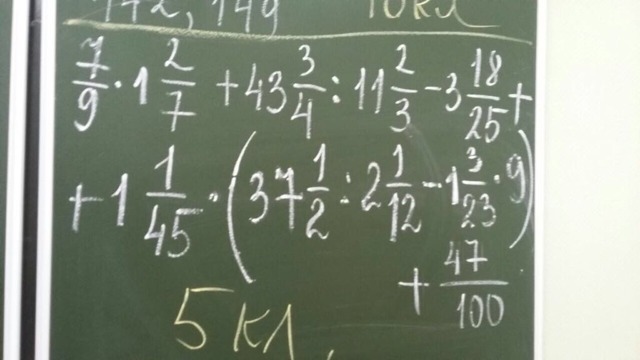 772, 149 10кл
7/9 · 1 2/7 + 43 3/4 : 11 2/3 - 3 18/25 +
+ 1 1/45 · (37 1/2 : 2 1/12 - 1 3/23 · 9)
+ 47/100
5 кл.